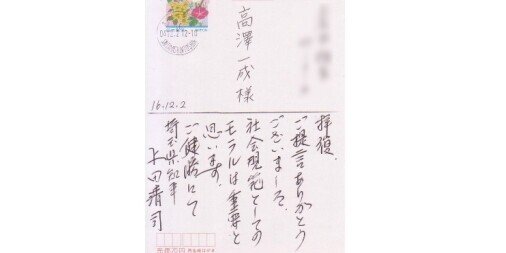 高澤一成様
16.12.2
拝復、
ご提言ありがとう
ございました。
社会規範としての
モラルは重要と
思います。
ご健勝にて
埼玉県知事
上田清司